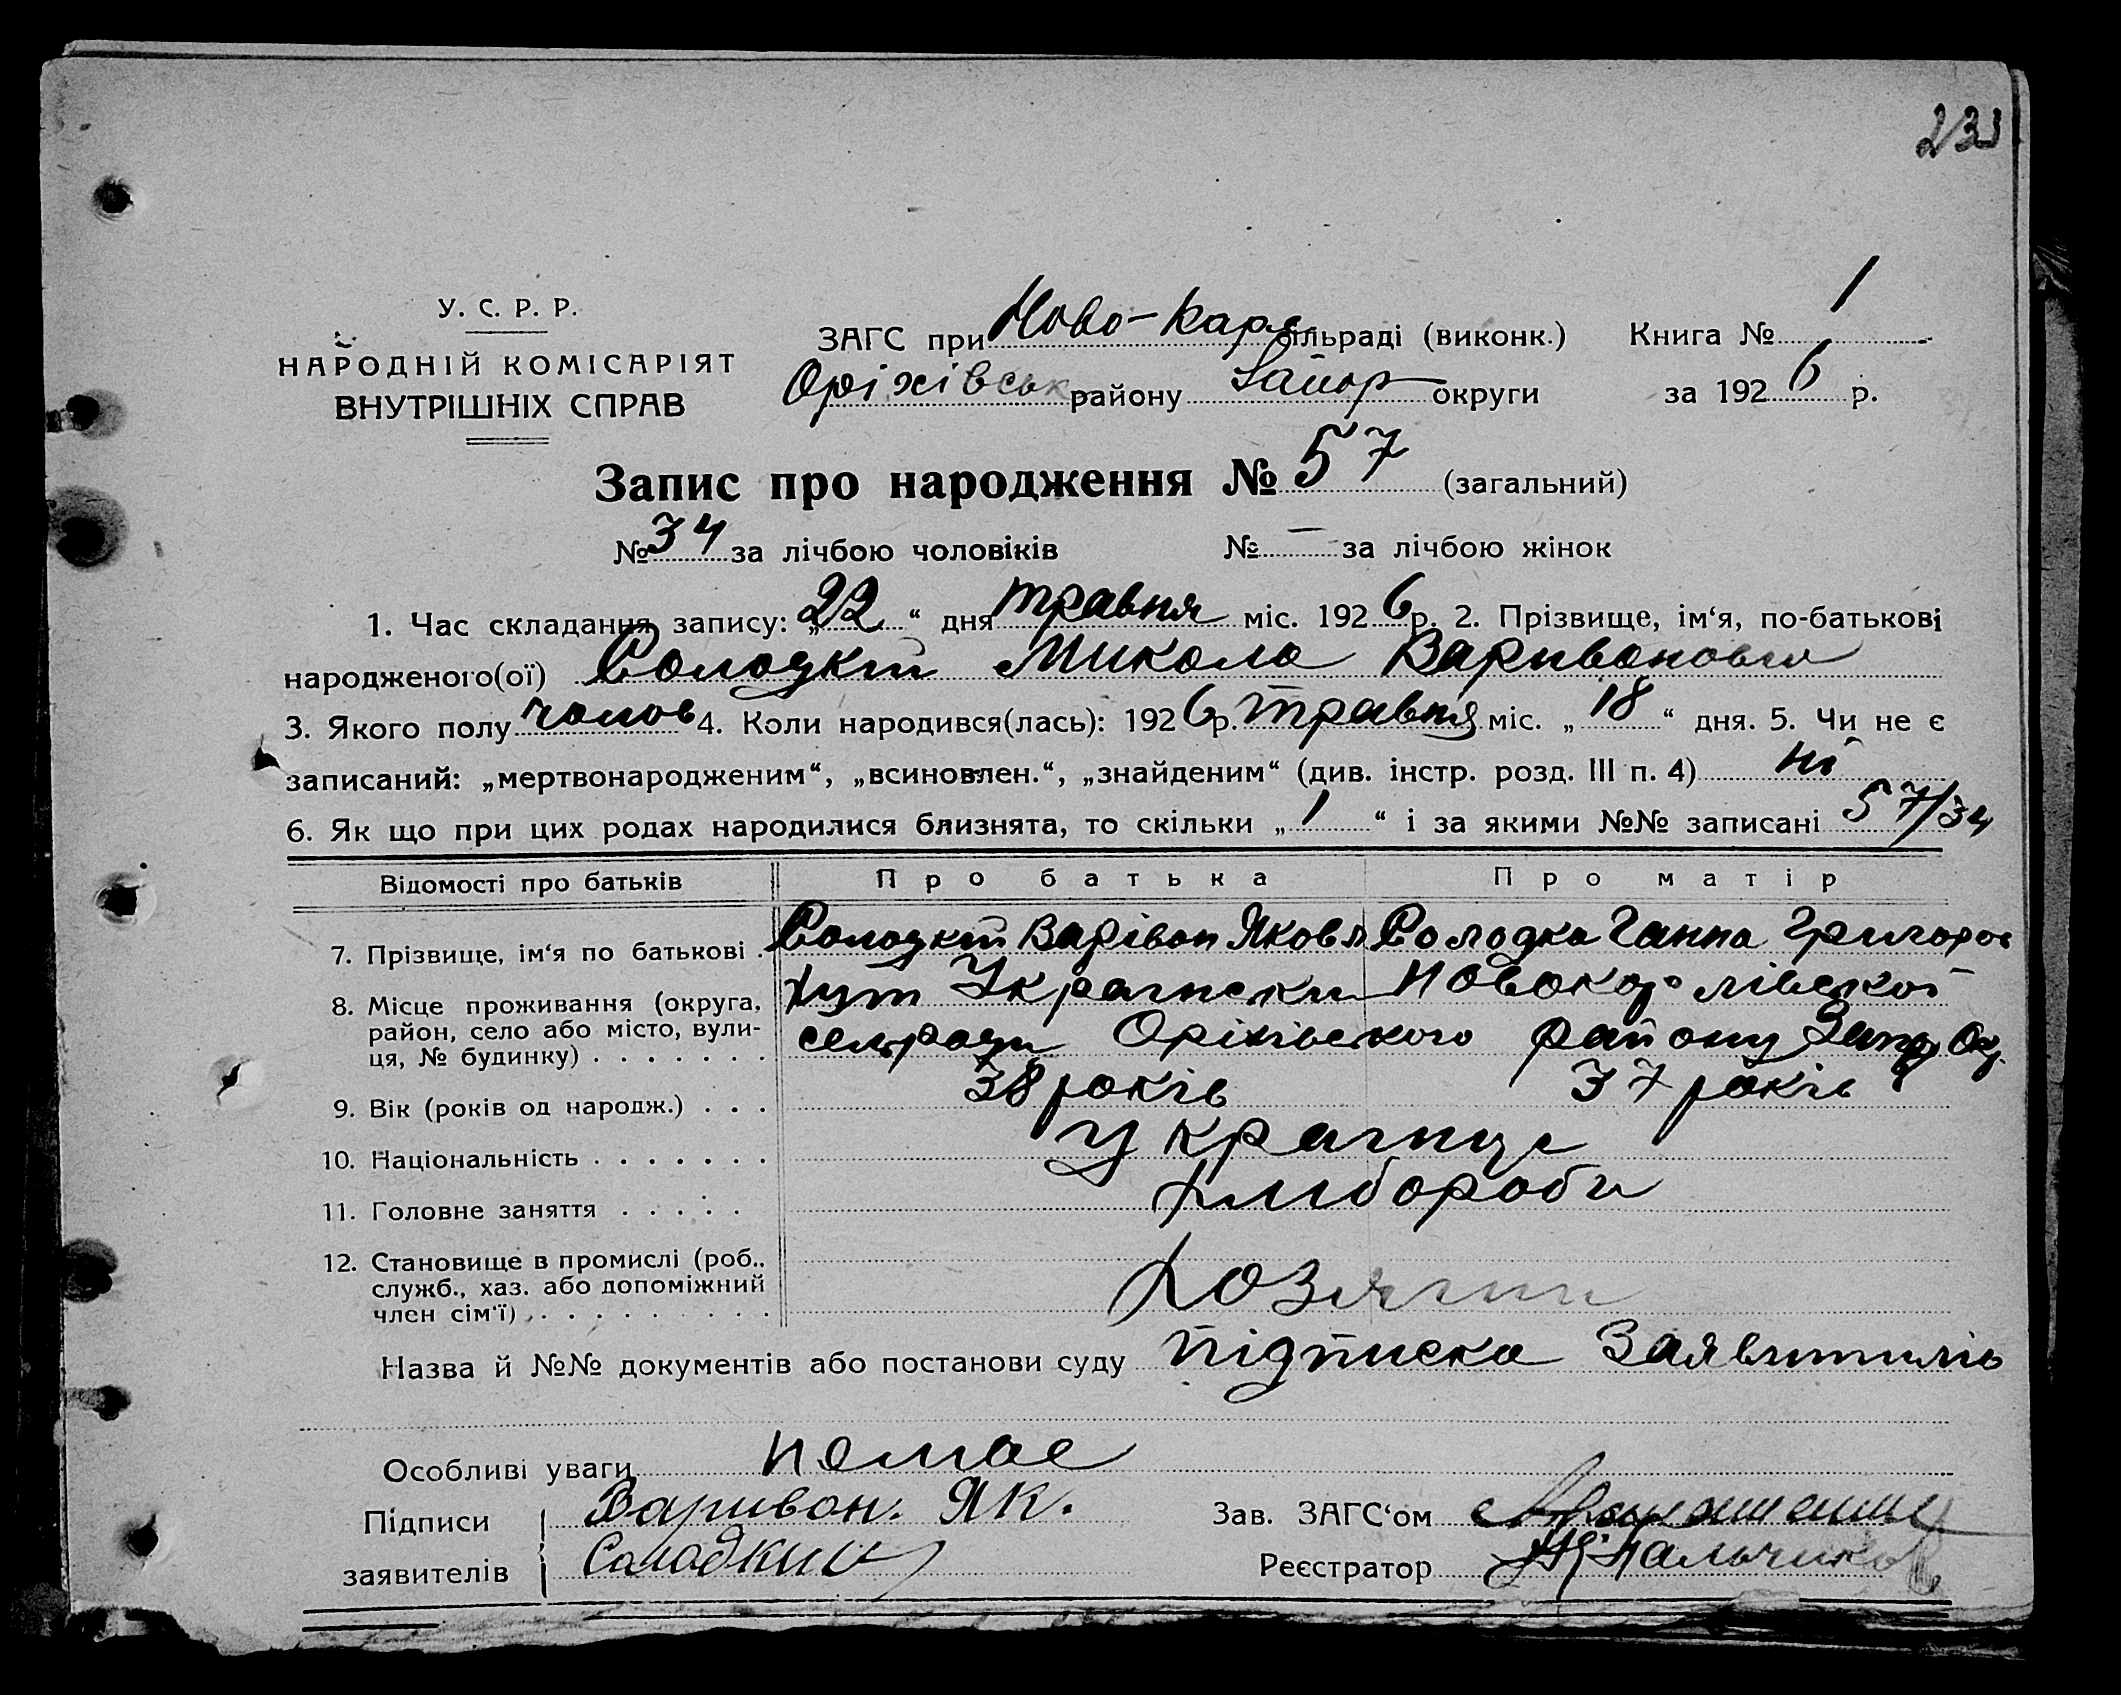 23
У. С. Р. Р.
НАРОДНІЙ КОМІСАРІЯТ
ВНУТРІШНІХ СПРАВ
ЗАГС при Ново-Карл сільраді (виконк.) Книга № 1
Оріхівськ району Запор округи за 1926 р.
Запис про народження № 57 (загальний)
№ 34 за лічбою чоловіків № — за лічбою жінок
1. Час складання запису: „22“ дня травня міс. 1926 р. 2. Прізвище, ім‘я, по-батькові
народженого(ої) Солодкий Микола Вариванович
3. Якого полу чолов 4. Коли народився(лась): 1926 р. травня міс. „18“ дня. 5. Чи не є
записаний: „мертвонародженим“, „всиновлен.“, „знайденим“ (див. інстр. розд. III п. 4) ні
6. Як що при цих родах народилися близнята, то скільки „1“ і за якими №№ записані 57/34
Відомості про батьків Про батька Про матір
7. Прізвище, ім‘я по батькові . Солодкий Варівон Яковл Солодка Ганна Григоров
8. Місце проживання (округа, район, село або місто, вули- ця, № будинку) . . . . . . . хут Українски Новокарлівської
сельради Оріхівського району Запор Окр.
9. Вік (років од народж.) . . . 38 років 37 років
10. Національність . . . . . . . Українці
11. Головне заняття . . . . . Хлибороби
12. Становище в промислі (роб., служб., хаз. або допоміжний член сім‘ї) . . . . . . . . . Хозяїни
Назва й №№ документів або постанови суду підписка Заявитилів
Особливі уваги немає
Підписи Вариван. Як. Зав. ЗАГС‘ом
заявителів Саладкий Реєстратор Пальчиков